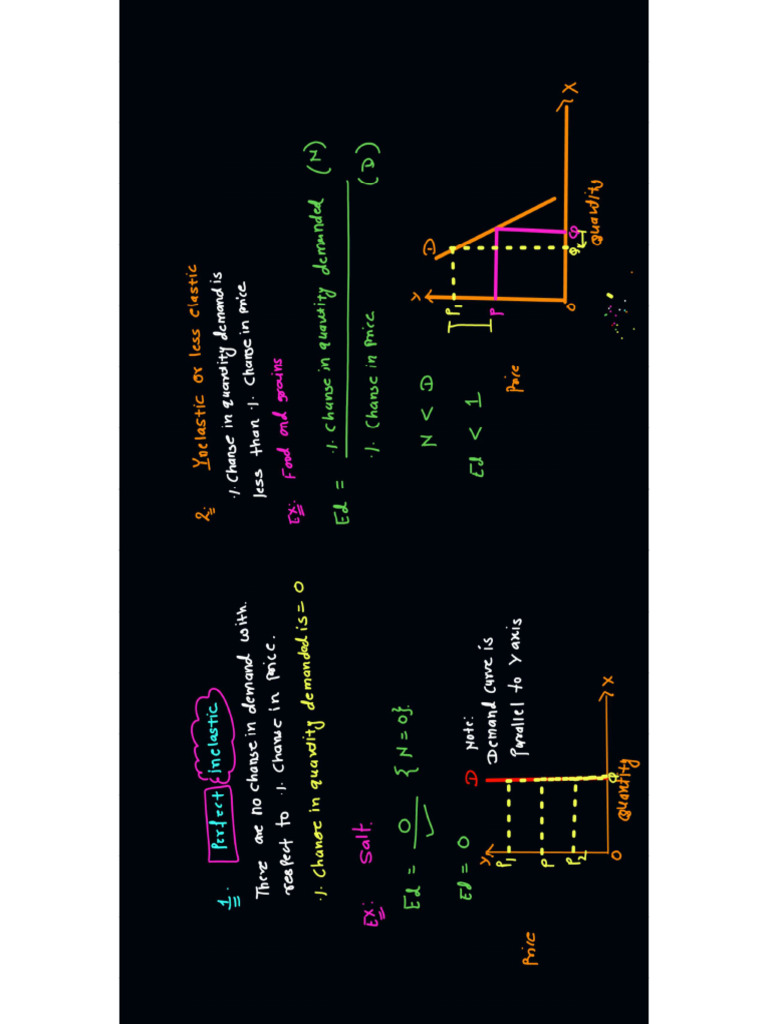 1. Perfect inelastic
There are no change in demand with
respect to ·/. Change in price.
·/. Change in quantity demanded is = 0
Ex: Salt.
Ed = 0 { N = 0}.
Ed = 0
Note:
Demand curve is
Parallel to Y axis
Price
Y
P1
P
P2
O
D
Q
Quantity
X
2. Inelastic or less elastic
·/. Change in quantity demand is
less than ·/. Change in price
Ex: Food and grains
Ed = ·/. Change in quantity demanded (N)
·/. Change in price (D)
N < D
Ed < 1
Price
Y
P1
P
O
D
Q
Quantity
X